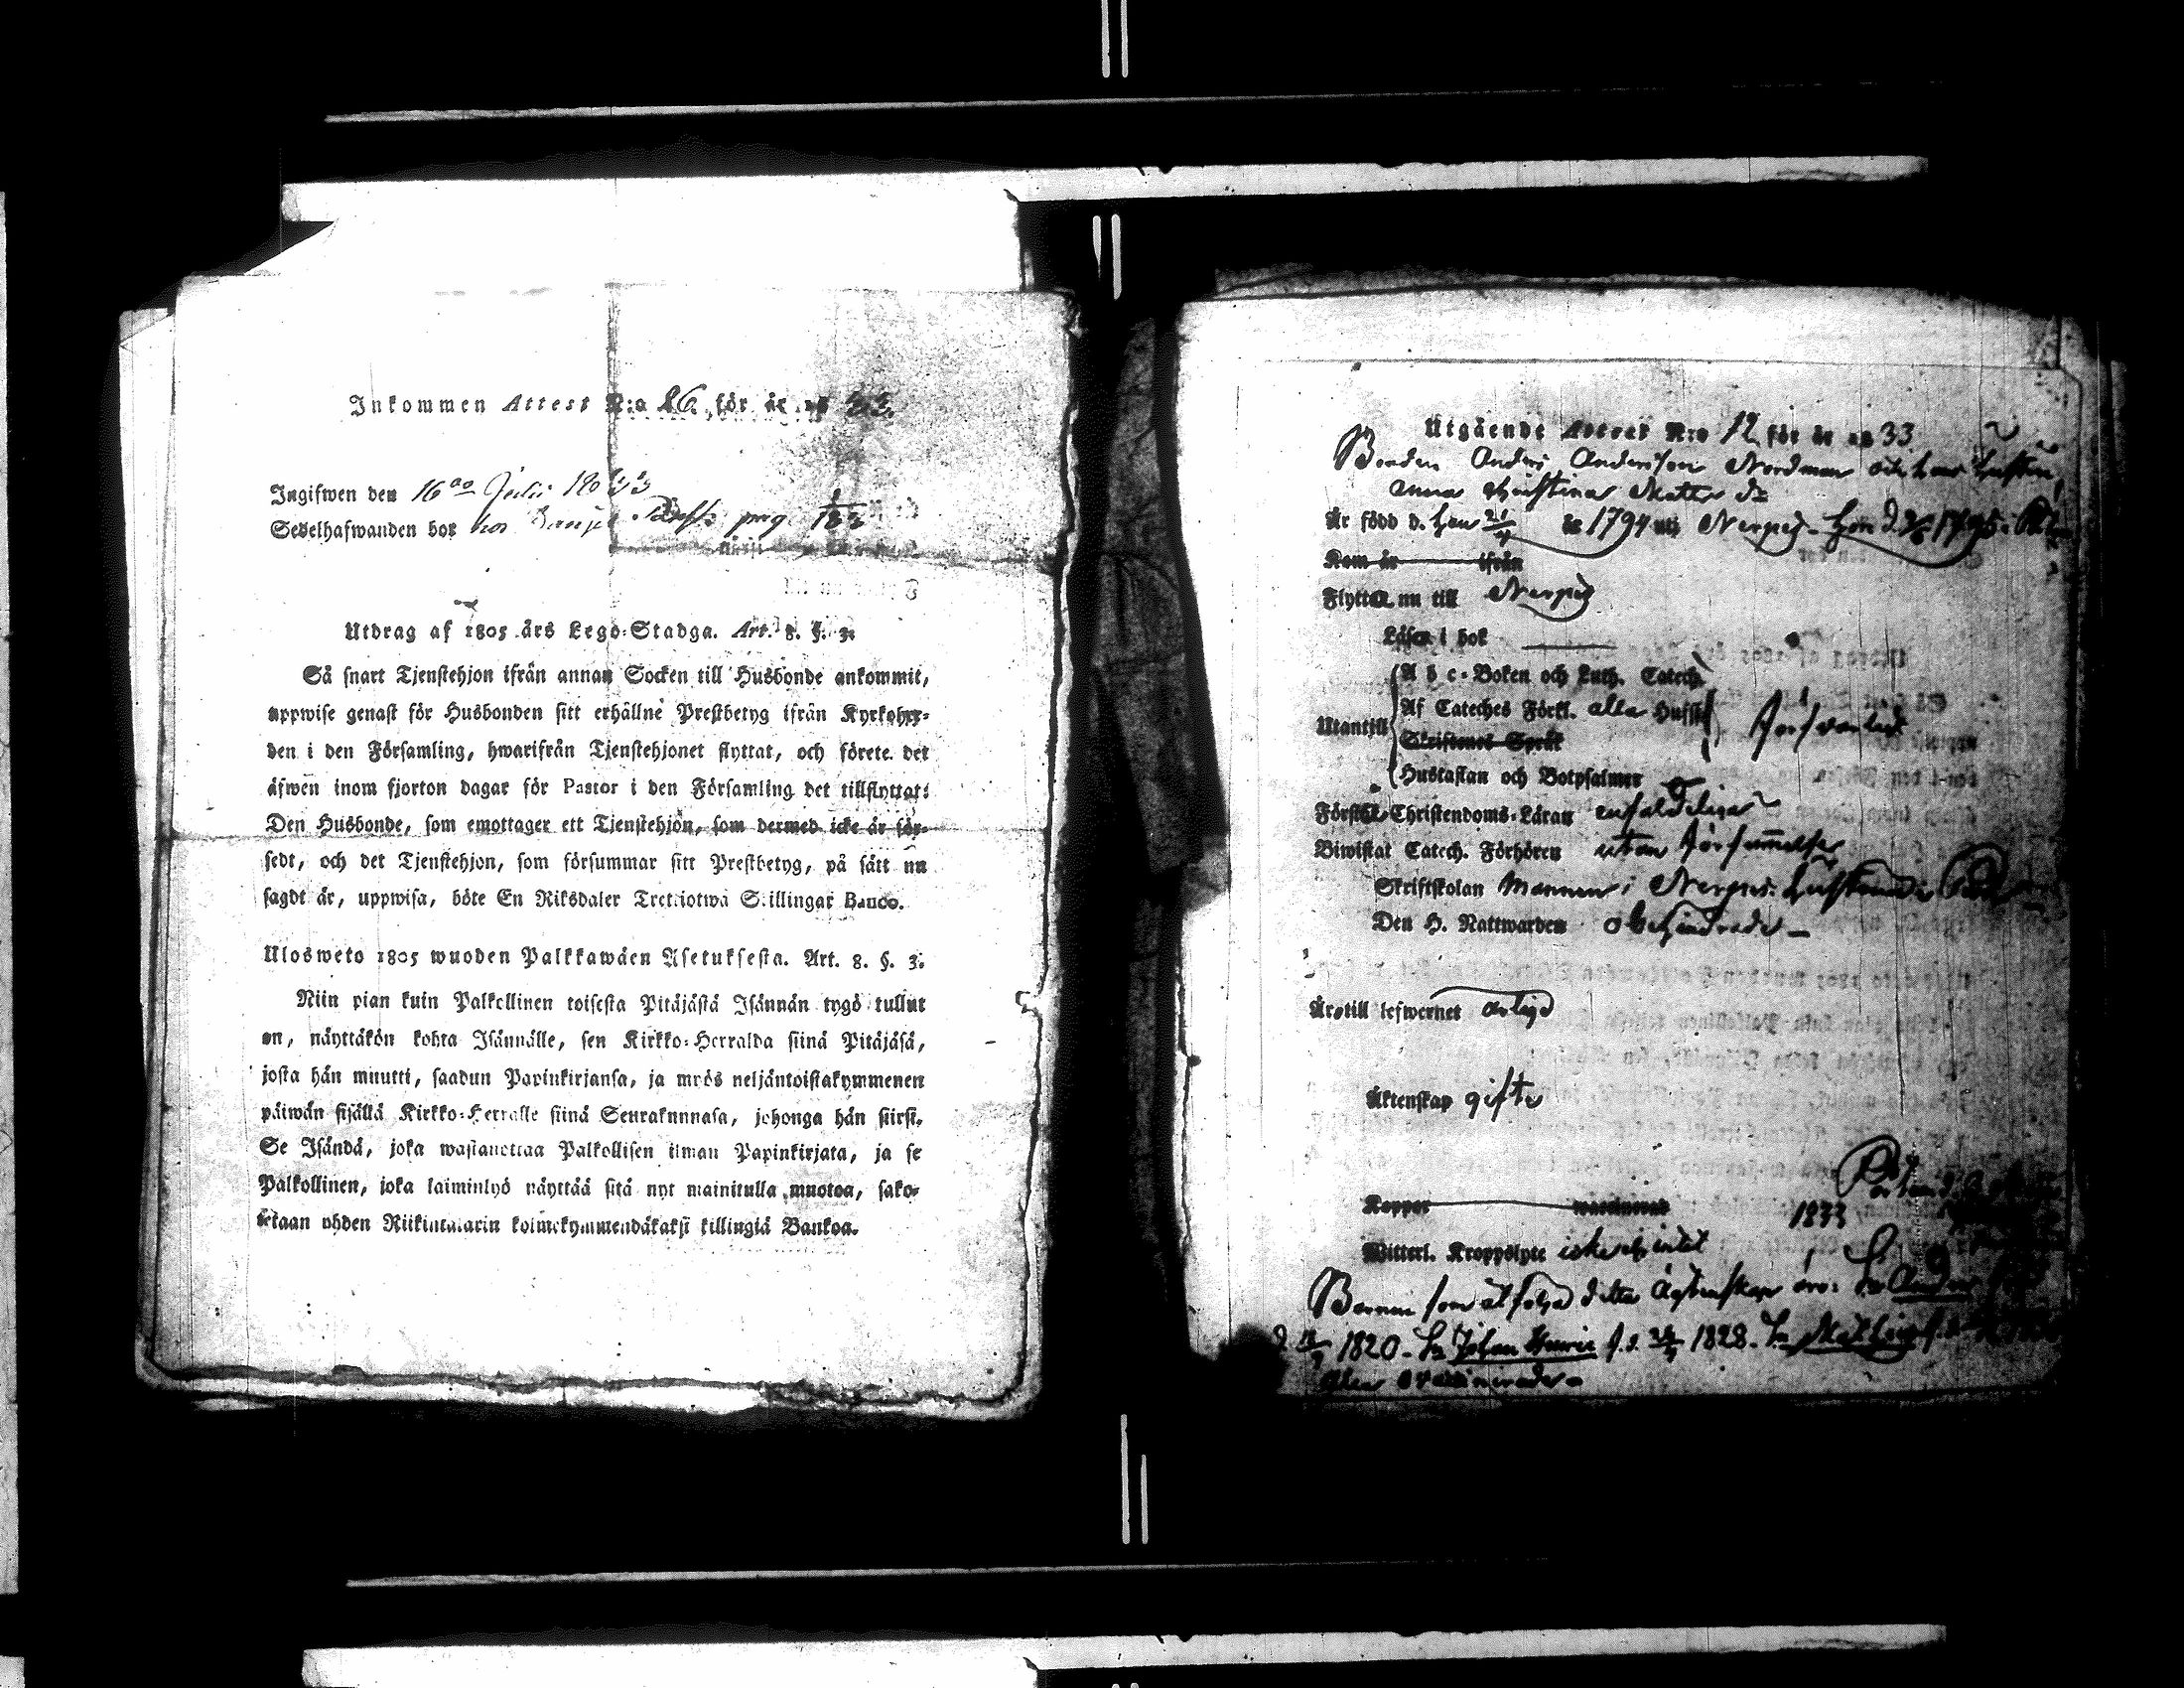 Inkommen Attest N:o 26. för år 18 33.
Ingifwen den 16de Julii 1833
Sedelhafwanden bor hos
Utdrag af 1805 års Lego-Stadga. Art. 8. §. 3.
Så snart Tjenstehjon ifrån annan Socken till Husbonde ankommit,
uppwise genast för Husbonden sitt erhållne Prestbetyg ifrån Kyrkoher-
den i den Församling, hwarifrån Tjenstehjonet flyttat, och förete det
äfwen inom fjorton dagar för Pastor i den Församling det tillflyttat:
Den Husbonde, som emottager ett Tjenstehjon, som dermed icke är för-
sedt, och det Tjenstehjon, som försummar sitt Prestbetyg, på sätt nu
sagdt är, uppwisa, böte En Riksdaler Trettiotwå Skillingar Banco.
Ulosweto 1805 wuoden Palkkawäen Asetuksesta. Art. 8. §. 3.
Niin pian kuin Palkollinen toisesta Pitäjästä Isännän tygö tullut
on, näyttäkön kohta Isännälle, sen Kirkko-Herralda siinä Pitäjäsä,
josta hän muutti, saadun Papinkirjansa, ja myös neljäntoistakymmenen
päiwän sisällä Kirkko-Herralle siinä Seurakunnasa, johonga hän siirsi.
Se Isändä, joka wastanottaa Palkollisen ilman Papinkirjata, ja se
Palkollinen, joka laiminlyö näyttää sitä nyt mainitulla muotoa, sako-
tetaan yhden Riikintalarin kolmekymmendäkaksi killingiä Bankoa.
Utgående Attest N:o 12 för år 18 33
Bonden Anders Andersson Nordman och hans hustru
Anna Christina Matts dr
Är född d. han 21/4 år 1794 uti Nerpes - hon d. 1795 i
Kom år ifrån
Flyttar nu till Nerpes
Läser i bok
A b c-Boken och Luth. Catech.
Utantill Af Cateches Förkl. alla Hufst. försvarligt
Skriftenes Språk
Hustaflan och Botpsalmer
Förstår Christendoms-Läran enfaldeligen
Biwistat Catech. Förhören utan försummelse
Skriftskolan Mannen i Nerpes. hustrun i
Den H. Nattwarden obehindrade
Är till lefwernet ärlige
Äktenskap gifte
Koppor waccinerad
1833
Witterl. Kroppslyte icke vetterl.
Barnen som åtfölja detta Ägtenskap äro: Sn Anders
1820. Sn Johan Henric f. d. 1828. Sn Mathias f. d.
Alla vaccinerade